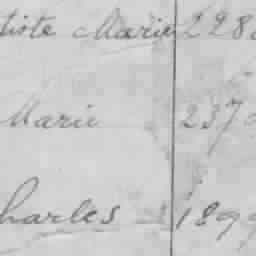 tiste Marie 228
Marie 237
harles 189